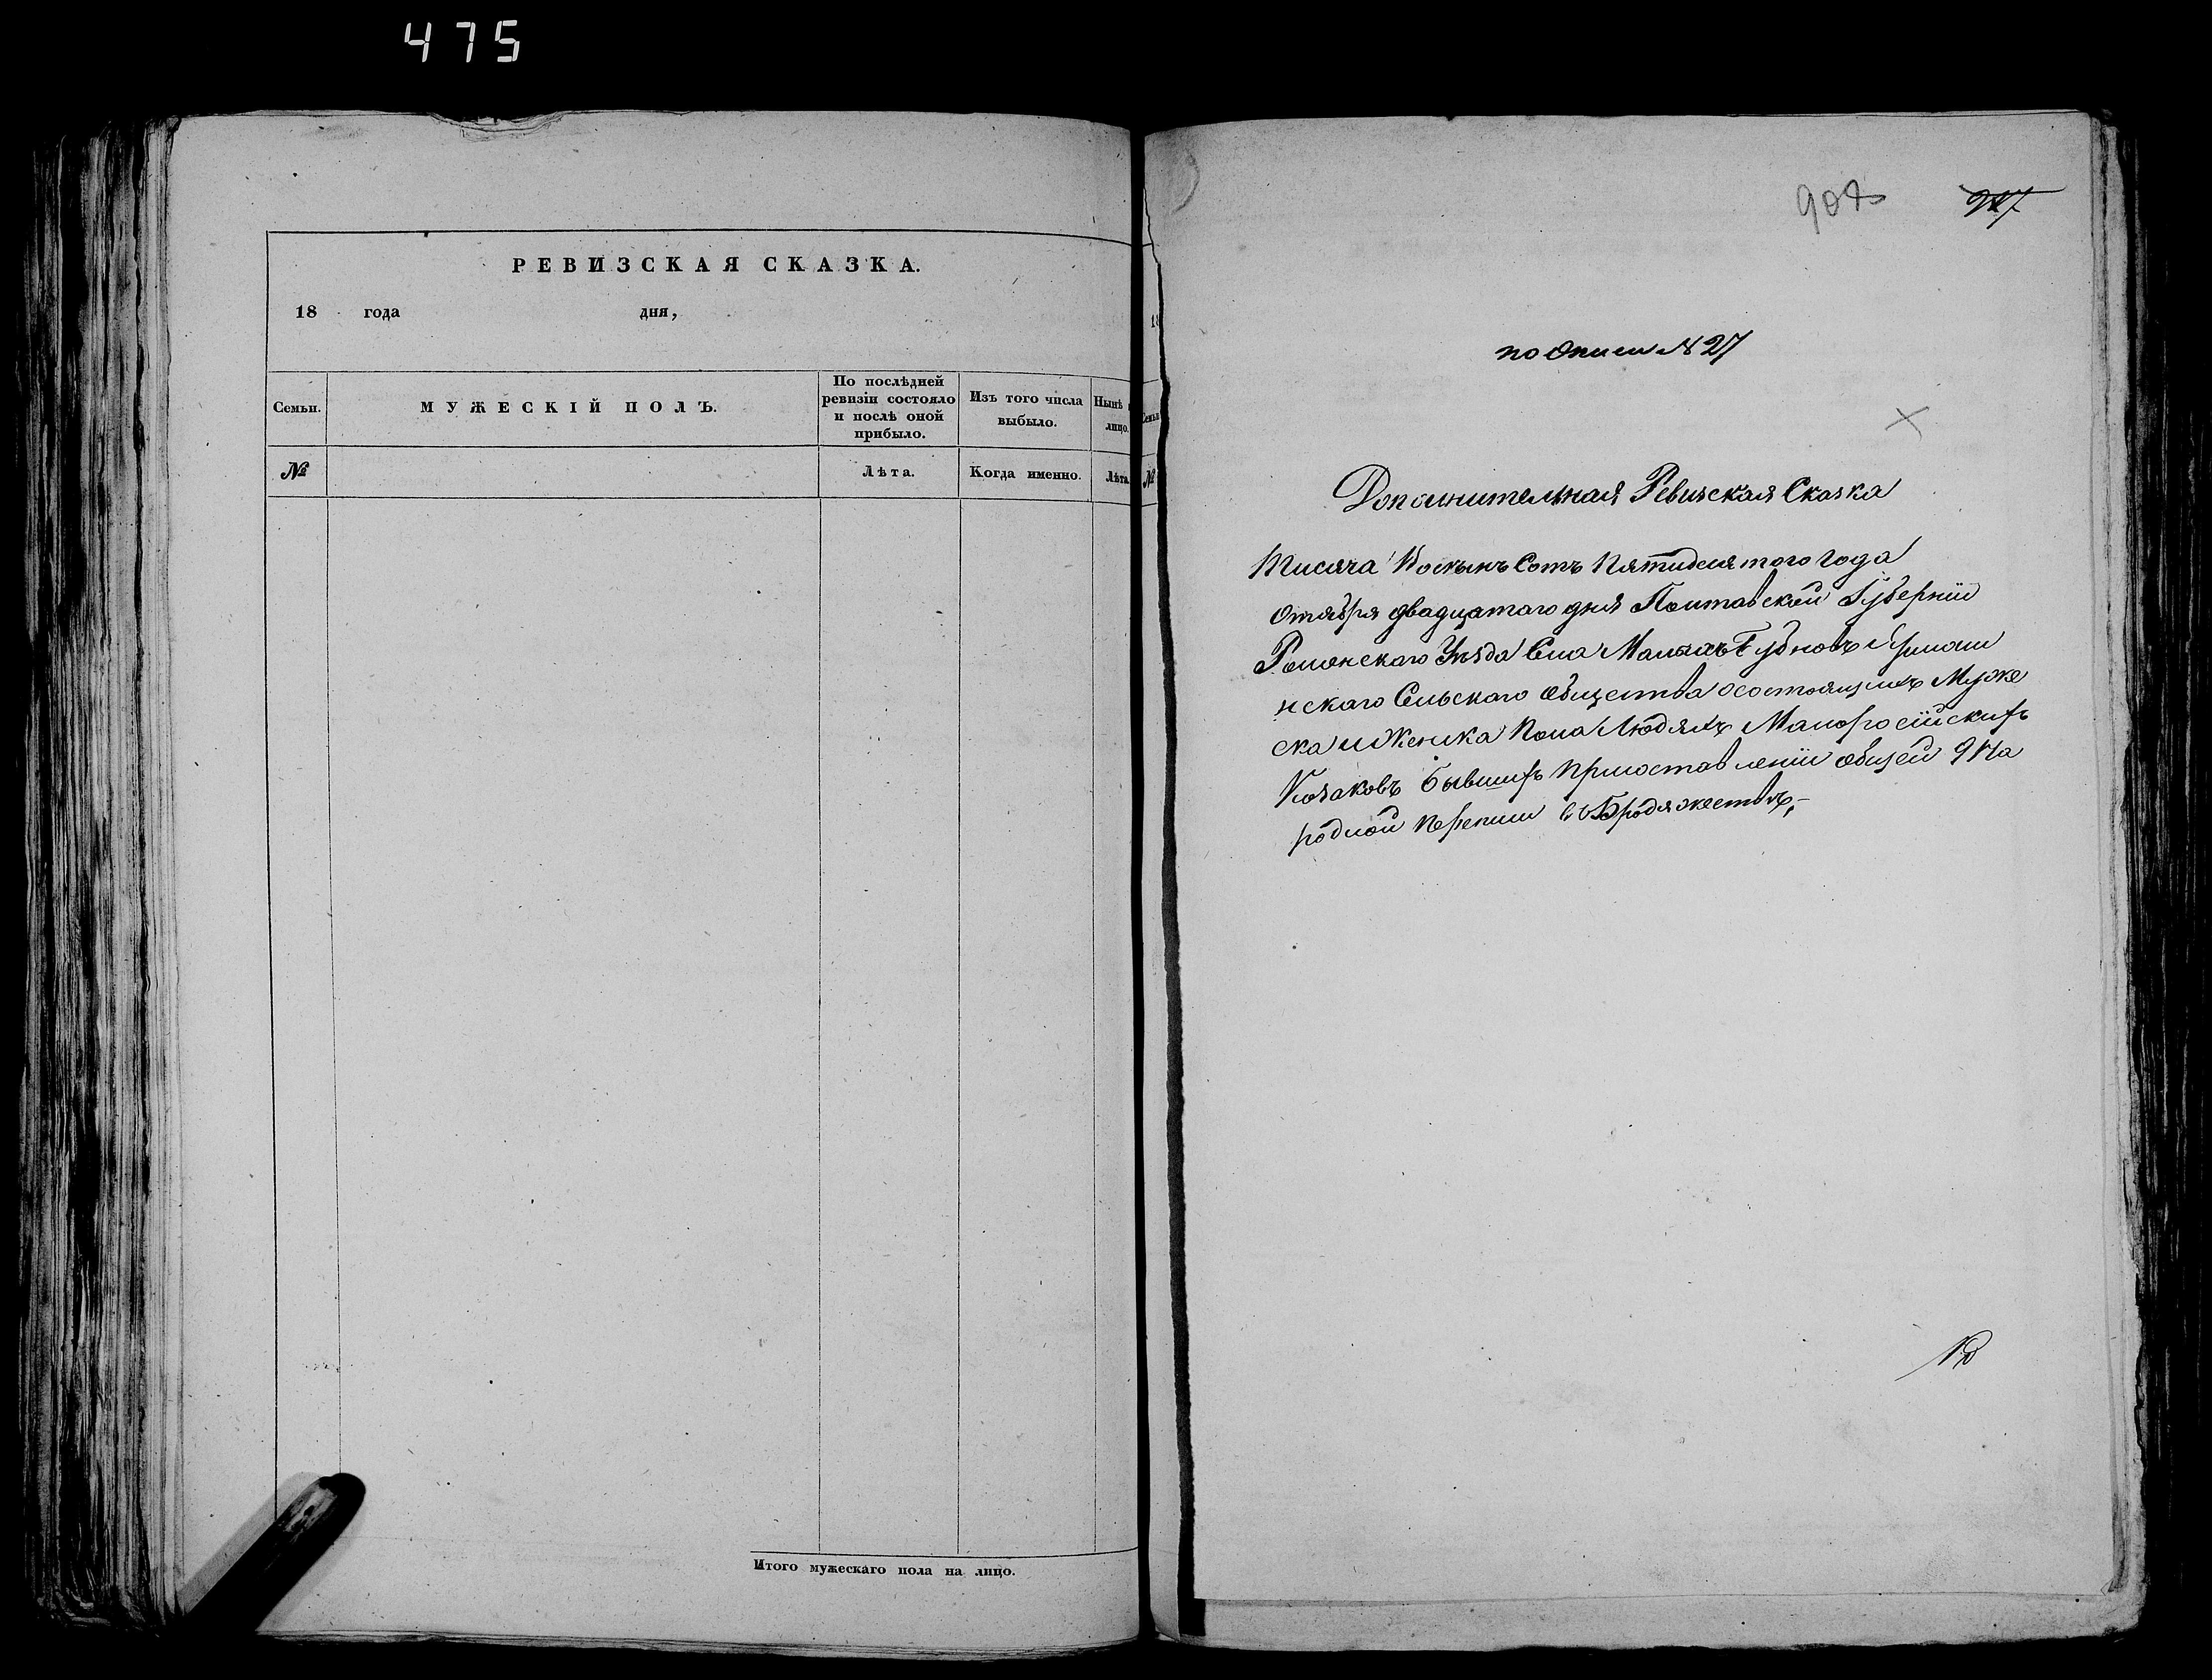 475
РЕВИЗСКАЯ СКАЗКА.
18 года дня,
Семьи. МУЖЕСКІЙ ПОЛЪ. По послѣдней ревизіи состояло и послѣ оной прибыло. Изъ того числа выбыло. Нынѣ лицо.
№ Лѣта. Когда именно. Лѣта.
Итого мужескаго пола на лицо.
по описи № 27
Дополнителная Ревизская Сказка
Тисяча Восемъ Сотъ Пятидесятого Года
Октября двадцатаго дня Полтавской Губерніи
Роменскаго Уѣзда Села Малыхъ Бубновъ
нскаго Сельскаго общества осостоящихъ Муже
ска иженска Пола Людяхъ Малоросїйскихъ
Козаковъ Бывшихъ присоставленіи общей 9 На
родной переписи въ Бродяжествѣ,-